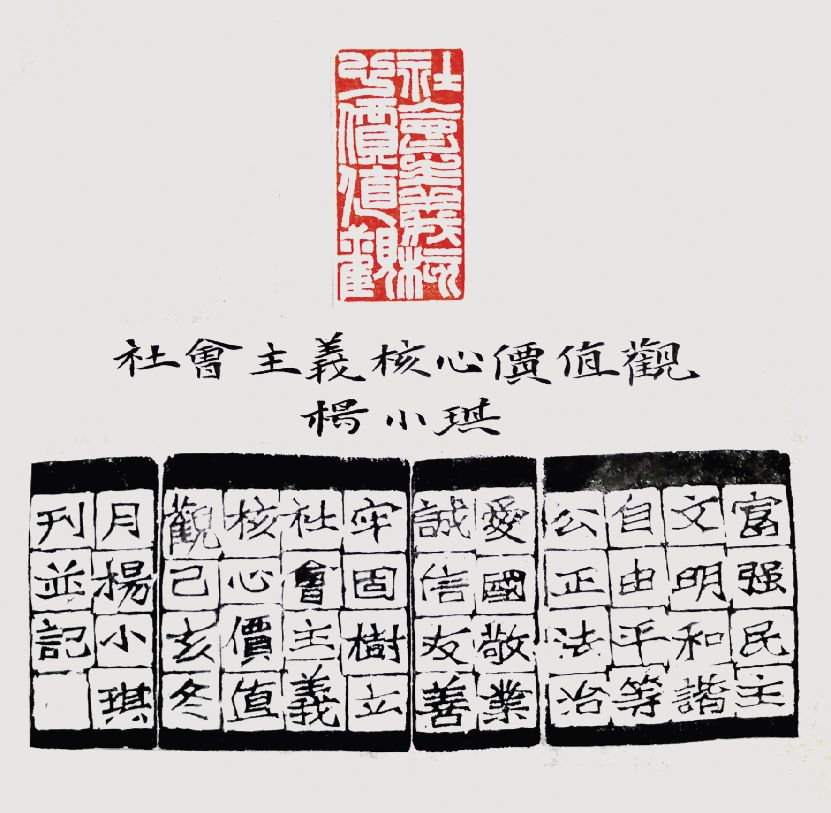 社會主義核
心價值觀
社會主義核心價值觀
楊小琪
富强民主
文明和諧
自由平等
公正法治
愛國敬業
誠信友善
牢固樹立
社會主義
核心價值
觀己亥冬
月楊小琪
刊並記